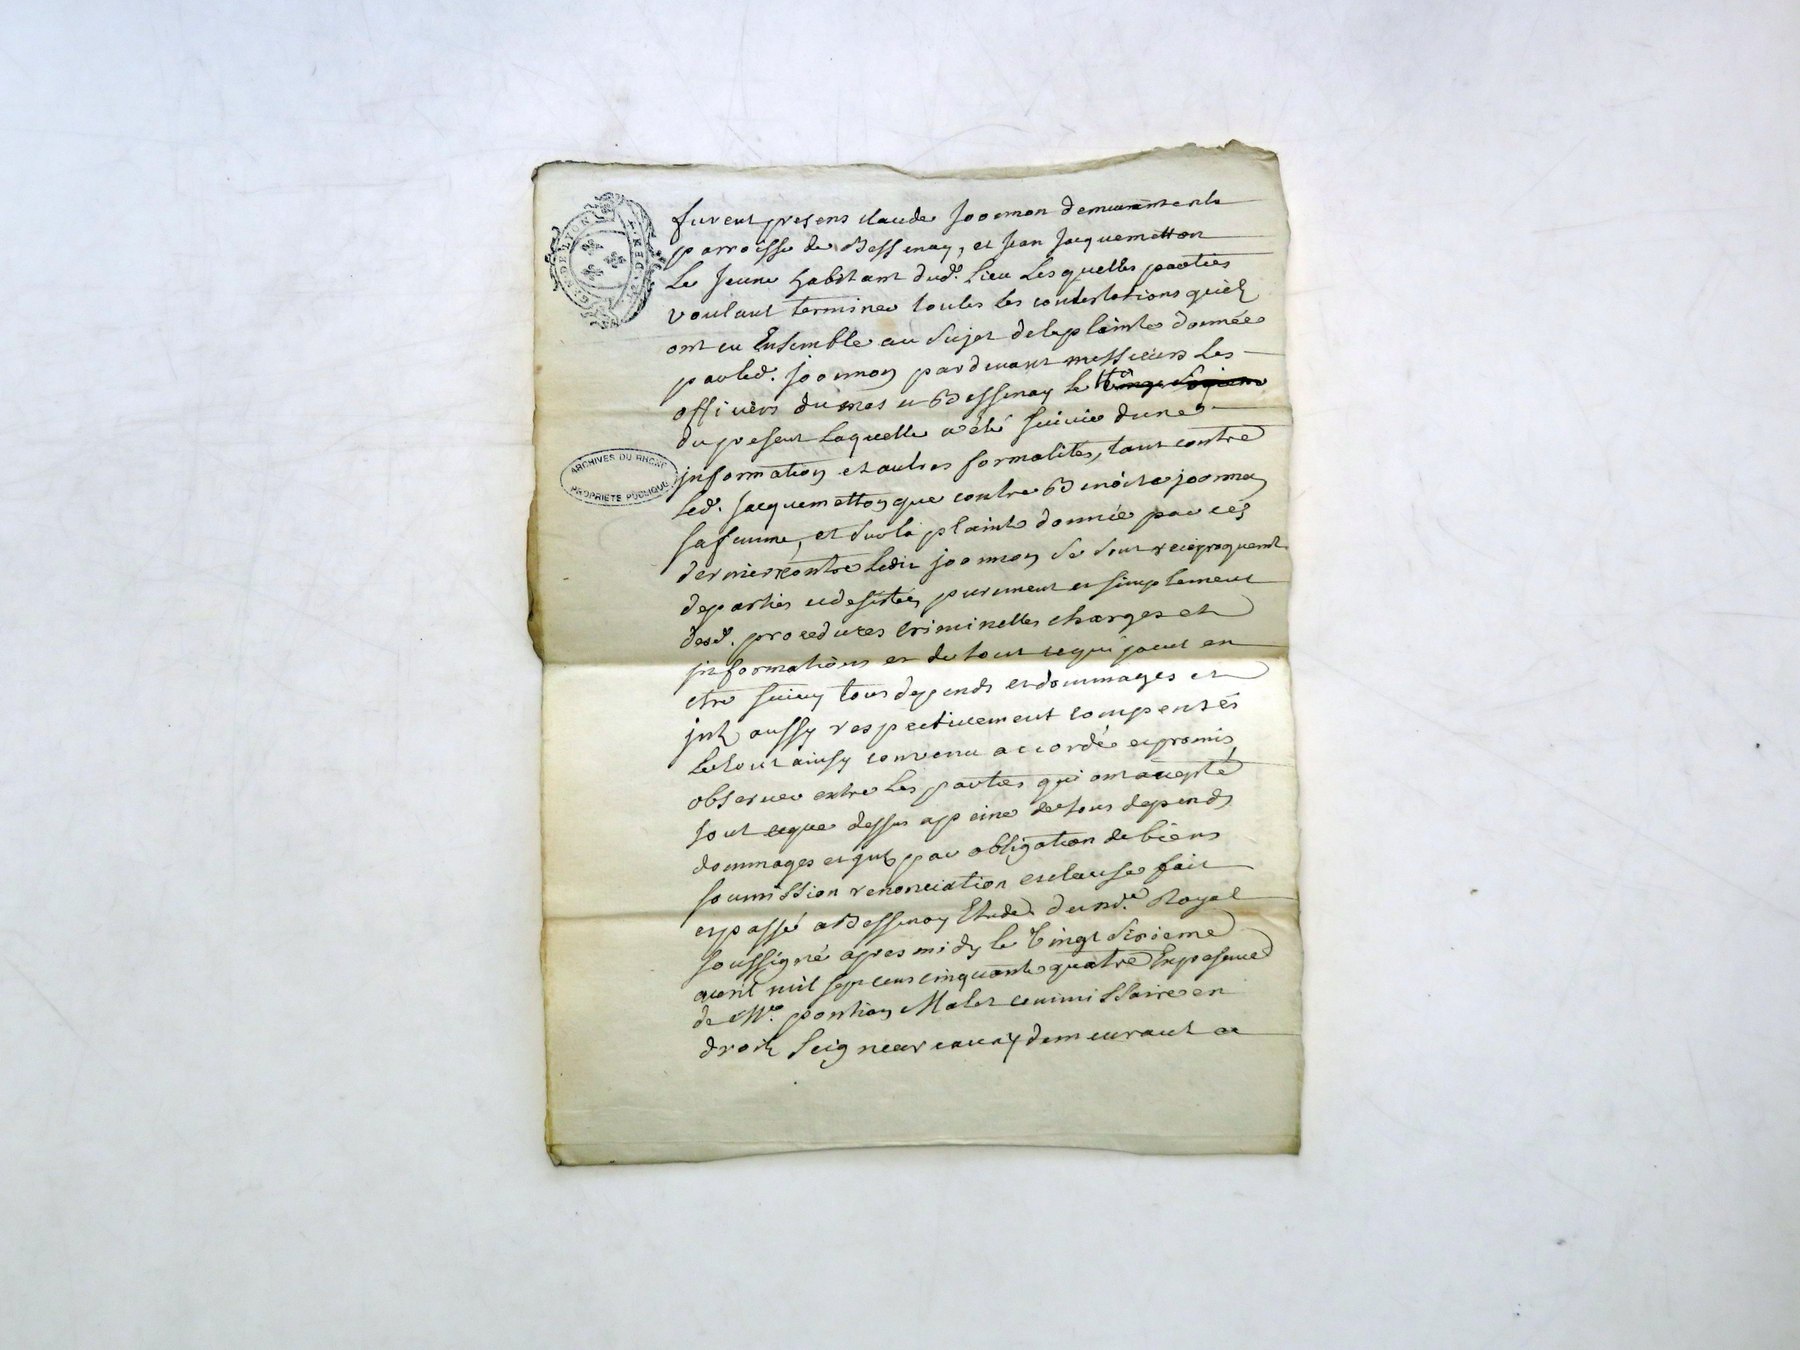 GEN. DE LYON
P. REG. N.
furent presens claude joonnon demeurant en la
parroisse de Bessenay, et Jean Jacquemetton
Le Jeune habitant dud. Lieu Lesquelles parties
voulant terminer toutes les contestations quils
ont eu Ensemble au sujet de la plainte donnée
par led. joonnon pardevant messieurs Les
officiers du mas et Bessenay le
du present Laquelle a été suivie dune
information et autres formalités, tant contre
led. Jacquemetton que contre Benoite joonnon
sa femme, et sur la plainte donnée par ces
derniers contre Ledit joonnon se sont reciproquement
departies et desistées purement et simplement
desd. procedures criminelles charges et
informations et de tout ce qui pouvt en
etre suivy tous depends et dommages et
jnts aussy respectivement compensés
Le tout ainsy convenu accordé et promis
observer entre Les parties qui ont accepté
tout ceque dessus a peine de tous depends
dommages et jnts par obligation de biens
soumission renonciation et clause fait
et passé a Bessenay Etude du nore. Royal
soussigné apres midy le vingt sixieme
avril mil sept cens cinquante quatre En presence
de Mre. ponthon Malet commissaire en
droits seigneuriaux demeurant a
ARCHIVES DU RHONE
PROPRIETE PUBLIQUE